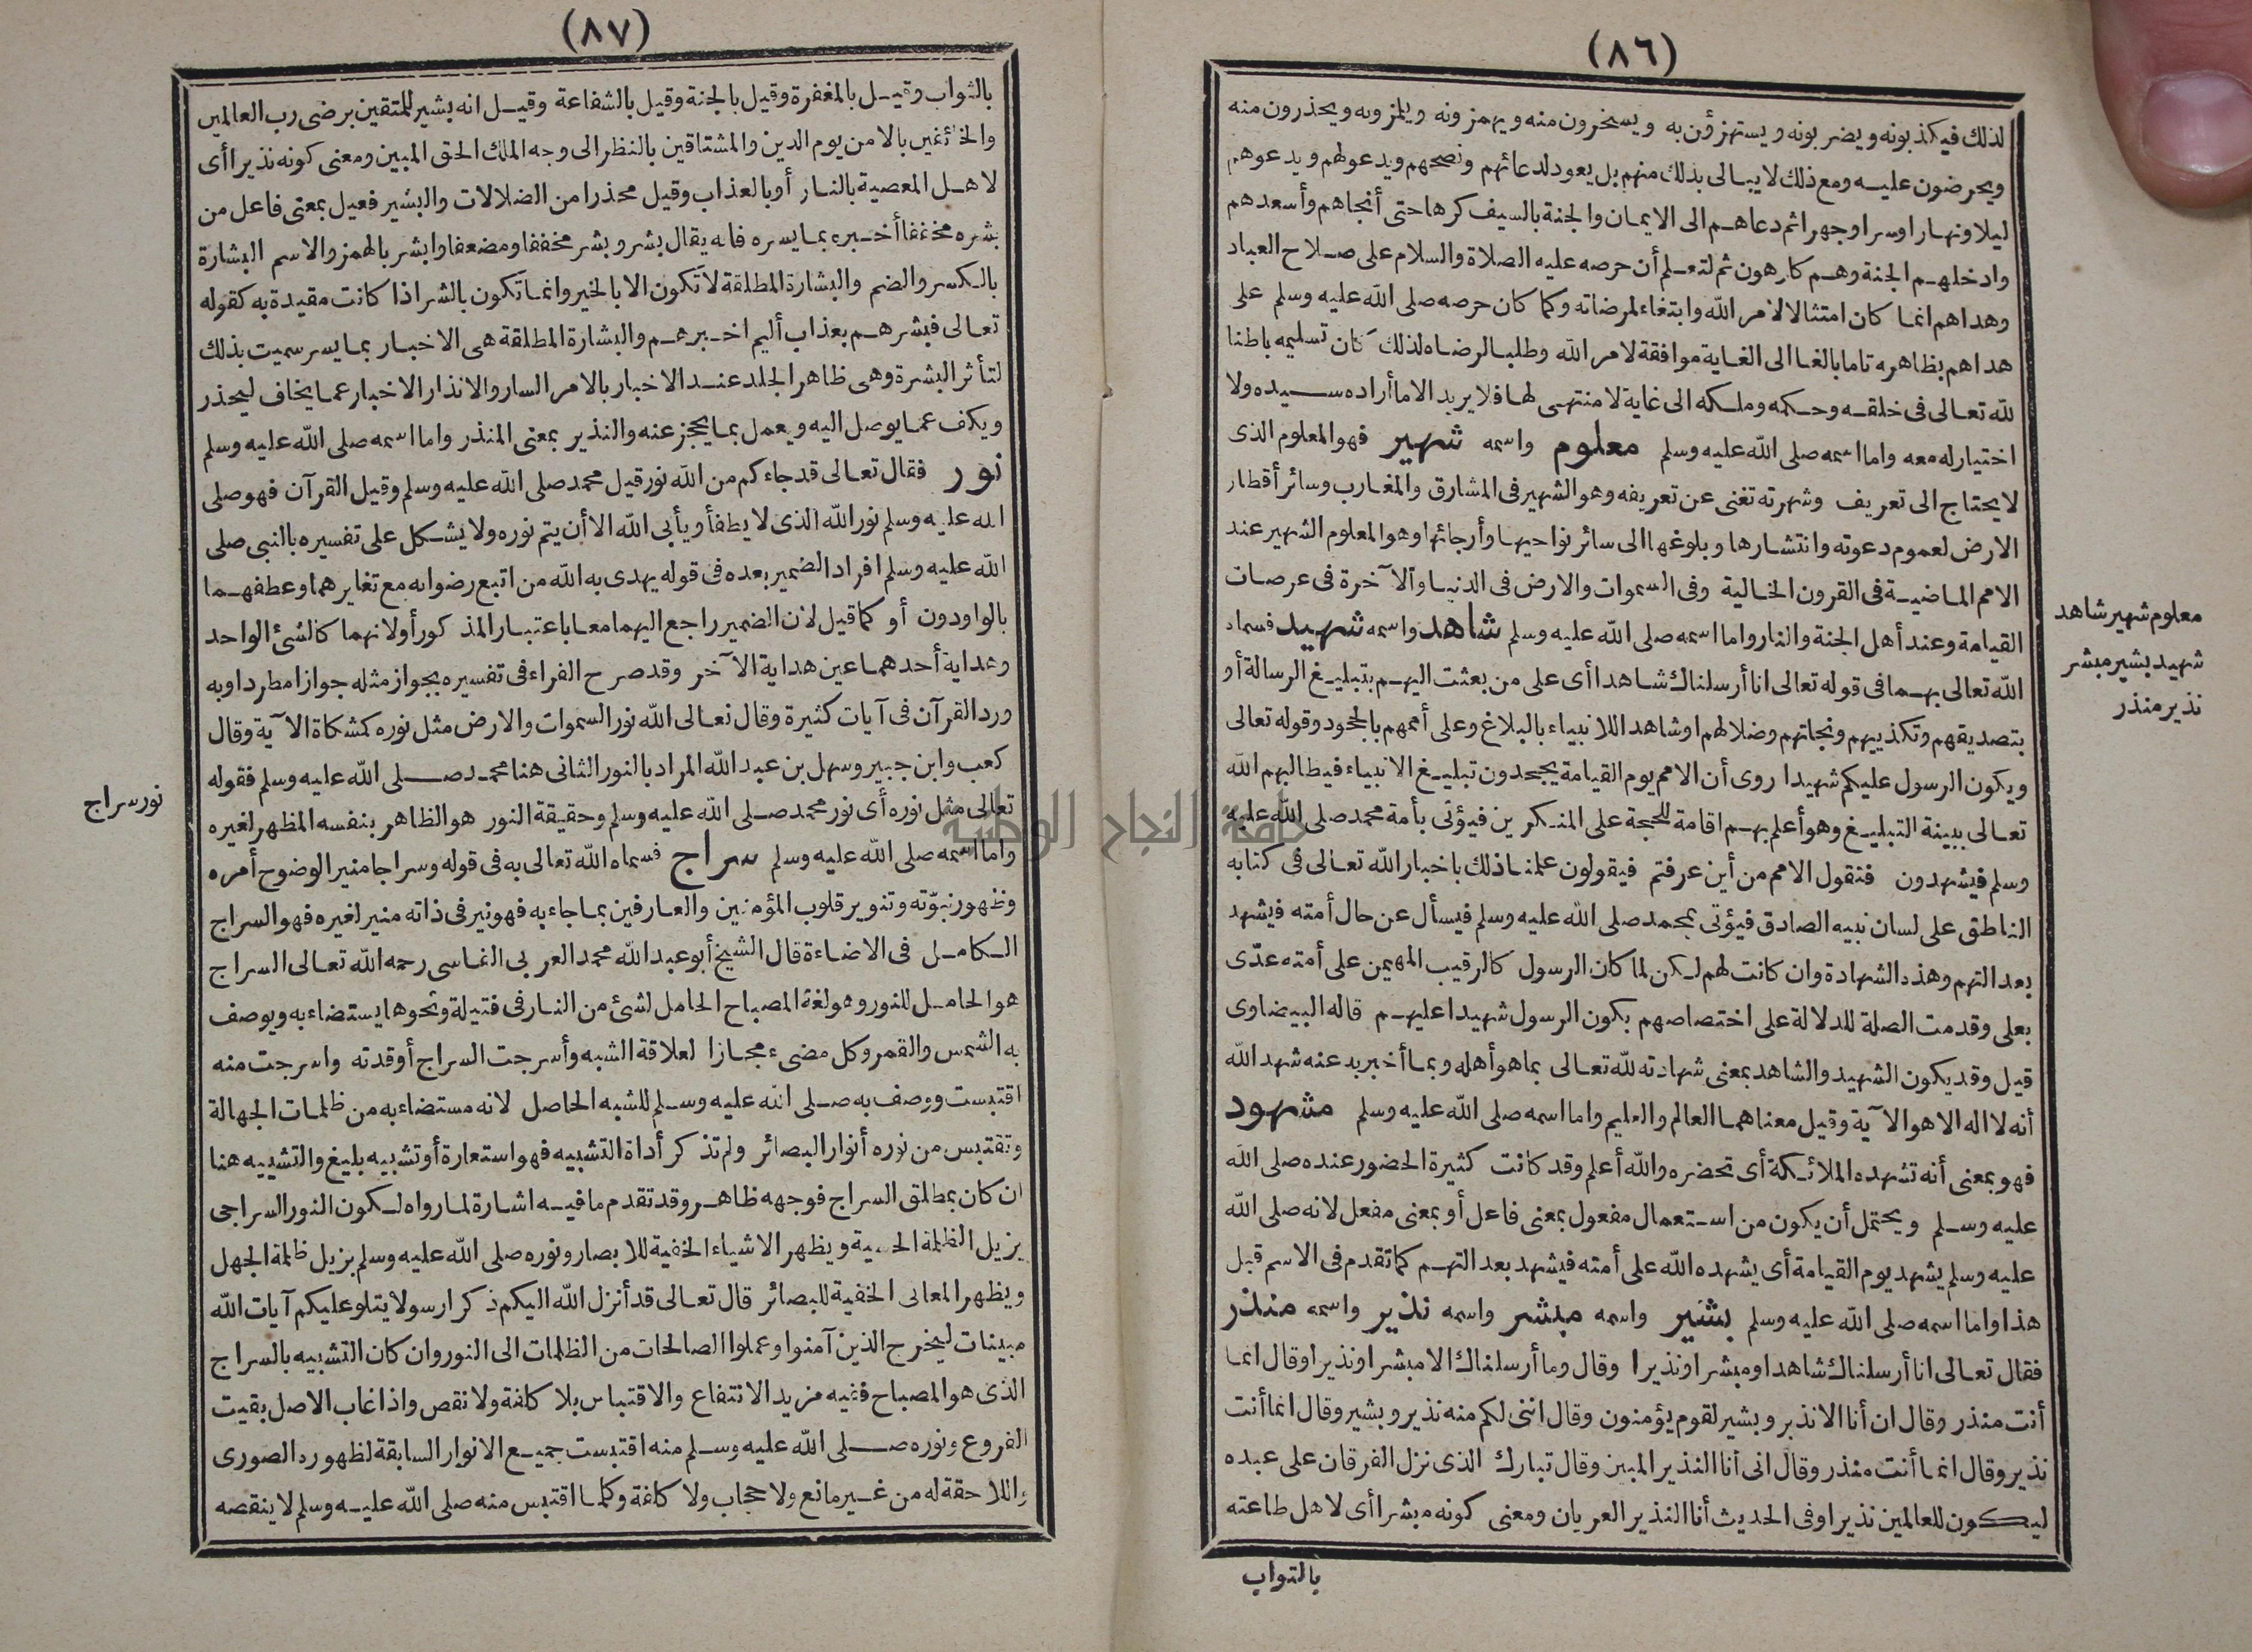 (٨٦)
لذلك فيكذبونه ويضربونه ويستهزؤن به ويسخرون منه ويهمزونه ويلمزونه ويحذرون منه
ويحرضون عليه ومع ذلك لا يبالى بذلك منهم بل يعود لدعائهم ونصحهم ويدعولهم ويدعوهم
ليلا ونهارا وسرا وجهرا ثم دعاهم الى الايمان والجنة بالسيف كرها حتى أنجاهم وأسعدهم
وادخلهم الجنة وهم كارهون ثم لتعلم أن حرصه عليه الصلاة والسلام على صلاح العباد
وهداهم انما كان امتثالا لامر الله وابتغاء لمرضاته وكما كان حرصه صلى الله عليه وسلم على
هداهم بظاهره تاما بالغا الى الغاية موافقة لامر الله وطلبا لرضاه لذلك كان تسليمه باطنا
لله تعالى فى خلقه وحكمه وملكه الى غاية لا منتهى لها فلا يريد الا ما أراده سيده ولا
اختيار له معه واما اسمه صلى الله عليه وسلم معلوم واسمه شهير فهو المعلوم الذى
لا يحتاج الى تعريف وشهرته تغنى عن تعريفه وهو الشهير فى المشارق والمغارب وسائر أقطار
الارض لعموم دعوته وانتشارها وبلوغها الى سائر نواحيها وأرجائها وهو المعلوم الشهير عند
الامم الماضية فى القرون الخالية وفى السموات والارض فى الدنيا والآخرة فى عرصات
القيامة وعند أهل الجنة والنار واما اسمه صلى الله عليه وسلم شاهد واسمه شهيد فسماه
الله تعالى بهما فى قوله تعالى انا أرسلناك شاهدا أى على من بعثت اليهم بتبليغ الرسالة أو
بتصديقهم وتكذيبهم ونجاتهم وضلالهم اوشاهدا للانبياء بالبلاغ وعلى أممهم بالجحود وقوله تعالى
ويكون الرسول عليكم شهيدا روى أن الامم يوم القيامة يجحدون تبليغ الانبياء فيطالبهم الله
تعالى ببينة التبليغ وهو أعلم بهم اقامة للحجة على المنكرين فيؤتى بأمة محمد صلى الله عليه
وسلم فيشهدون فتقول الامم من أين عرفتم فيقولون علمنا ذلك باخبار الله تعالى فى كتابه
الناطق على لسان نبيه الصادق فيؤتى بمحمد صلى الله عليه وسلم فيسأل عن حال أمته فيشهد
بعدالتهم وهذه الشهادة وان كانت لهم لكن لما كان الرسول كالرقيب المهيمن على أمته عدّى
بعلى وقدمت الصلة للدلالة على اختصاصهم بكون الرسول شهيدا عليهم قاله البيضاوى
قيل وقد يكون الشهيد والشاهد بمعنى شهادته لله تعالى بما هو أهله وبما أخبر به عنه شهد الله
أنه لا اله الا هو الآية وقيل معناهما العالم والعليم واما اسمه صلى الله عليه وسلم مشهود
فهو بمعنى أنه تشهده الملائكة أى تحضره والله أعلم وقد كانت كثيرة الحضور عنده صلى الله
عليه وسلم ويحتمل أن يكون من استعمال مفعول بمعنى فاعل أو بمعنى مفعل لانه صلى الله
عليه وسلم يشهد يوم القيامة أى يشهده الله على أمته فيشهد بعدالتهم كما تقدم فى الاسم قبل
هذا واما اسمه صلى الله عليه وسلم بشير واسمه مبشر واسمه نذير واسمه منذر
فقال تعالى انا أرسلناك شاهدا ومبشرا ونذيرا وقال وما أرسلناك الا مبشرا ونذيرا وقال انما
أنت منذر وقال ان أنا الا نذير وبشير لقوم يؤمنون وقال اننى لكم منه نذير وبشير وقال انما أنت
نذير وقال انما أنت منذر وقال انى أنا النذير المبين وقال تبارك الذى نزل الفرقان على عبده
ليكون للعالمين نذيرا وفى الحديث أنا النذير العريان ومعنى كونه مبشرا أى لاهل طاعته
بالثواب
معلوم شهير شاهد
شهيد بشير مبشر
نذير منذر
(٨٧)
بالثواب وقيل بالمغفرة وقيل بالجنة وقيل بالشفاعة وقيل انه بشير للمتقين برضى رب العالمين
والخائفين بالامن يوم الدين والمشتاقين بالنظر الى وجه الملك الحق المبين ومعنى كونه نذيرا أى
لاهل المعصية بالنار أو بالعذاب وقيل محذرا من الضلالات والبشير فعيل بمعنى فاعل من
بشره مخففا أخبره بما يسره فانه يقال بشر وبشر مخففا ومضعفا وابشر بالهمز والاسم البشارة
بالكسر والضم والبشارة المطلقة لا تكون الا بالخير وانما تكون بالشر اذا كانت مقيدة به كقوله
تعالى فبشرهم بعذاب أليم اخبرهم والبشارة المطلقة هى الاخبار بما يسر سميت بذلك
لتأثر البشرة وهى ظاهر الجلد عند الاخبار بالامر السار والانذار الاخبار عما يخاف ليحذر
ويكف عما يوصل اليه ويعمل بما يحجز عنه والنذير بمعنى المنذر واما اسمه صلى الله عليه وسلم
نور فقال تعالى قد جاءكم من الله نور قيل محمد صلى الله عليه وسلم وقيل القرآن فهو صلى
الله عليه وسلم نور الله الذى لا يطفأ ويأبى الله الا أن يتم نوره ولا يشكل على تفسيره بالنبى صلى
الله عليه وسلم افراد الضمير بعده فى قوله يهدى به الله من اتبع رضوانه مع تغايرهما وعطفهما
بالواو دون أو كما قيل لان الضمير راجع اليهما معا باعتبار المذكور أو لانهما كالشئ الواحد
وهداية أحدهما عين هداية الآخر وقد صرح الفراء فى تفسيره بجواز مثله جوازا مطردا وبه
ورد القرآن فى آيات كثيرة وقال تعالى الله نور السموات والارض مثل نوره كمشكاة الآية وقال
كعب وابن جبير وسهل بن عبد الله المراد بالنور الثانى هنا محمد صلى الله عليه وسلم فقوله
تعالى مثل نوره أى نور محمد صلى الله عليه وسلم وحقيقة النور هو الظاهر بنفسه المظهر لغيره
واما اسمه صلى الله عليه وسلم سراج فسماه الله تعالى به فى قوله وسراجا منيرا لوضوح أمره
وظهور نبوّته وتنوير قلوب المؤمنين والعارفين بما جاء به فهو نير فى ذاته منير لغيره فهو السراج
الكامل فى الاضاءة قال الشيخ أبو عبد الله محمد العربى الفاسى رحمه الله تعالى السراج
هو الحامل للنور وهو لغة المصباح الحامل لشئ من النار فى فتيلة ونحوها يستضاء به ويوصف
به الشمس والقمر وكل مضىء مجازا لعلاقة الشبه وأسرجت السراج أوقدته واسرجت منه
اقتبست ووصف به صلى الله عليه وسلم للشبه الحاصل لانه مستضاء به من ظلمات الجهالة
وتقتبس من نوره أنوار البصائر ولم تذكر أداة التشبيه فهو استعارة أو تشبيه بليغ والتشبيه هنا
ان كان بمطلق السراج فوجهه ظاهر وقد تقدم ما فيه اشارة لما رواه لكون النور السراجى
يزيل الظلمة الحسية ويظهر الاشياء الخفية للابصار ونوره صلى الله عليه وسلم يزيل ظلمة الجهل
ويظهر المعانى الخفية للبصائر قال تعالى قد أنزل الله اليكم ذكرا رسولا يتلو عليكم آيات الله
مبينات ليخرج الذين آمنوا وعملوا الصالحات من الظلمات الى النور وان كان التشبيه بالسراج
الذى هو المصباح ففيه مزيد الانتفاع والاقتباس بلا كلفة ولا نقص واذا غاب الاصل بقيت
الفروع ونوره صلى الله عليه وسلم منه اقتبست جميع الانوار السابقة لظهوره الصورى
واللاحقة له من غير مانع ولا حجاب ولا كلفة وكلما اقتبس منه صلى الله عليه وسلم لا ينقصه
نور سراج
جامعة النجاح الوطنية